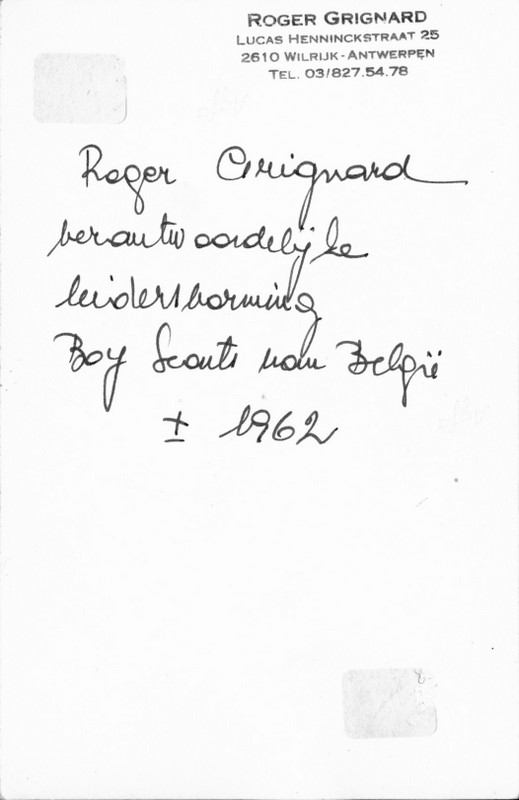 ROGER GRIGNARD
LUCAS HENNINCKSTRAAT 25
2610 WILRIJK-ANTWERPEN
TEL. 03/827.54.78
Roger Grignard
verantwoordelijke
leidersvorming
Boy Scouts van België
± 1962